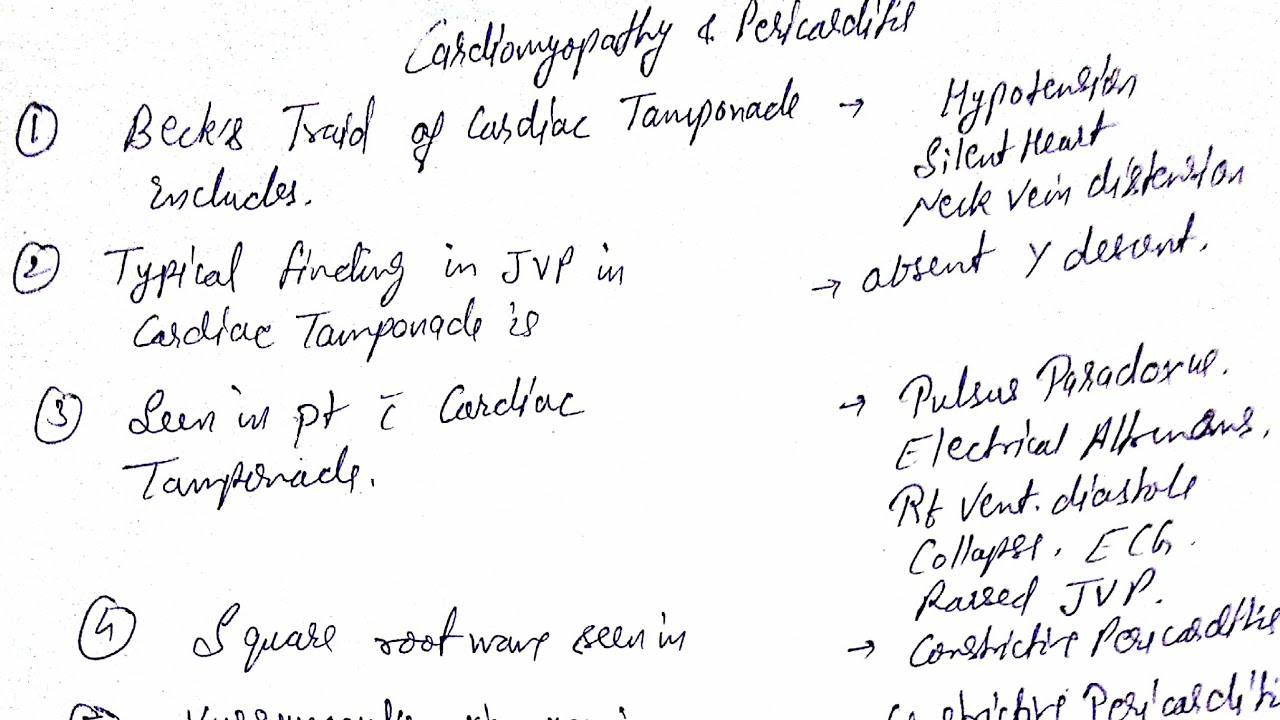 Cardiomyopathy & Pericarditis
① Beck's Traid of Cardiac Tamponade → Hypotension
includes. Silent Heart
Neck vein distension
② Typical finding in JVP in → absent Y descent.
Cardiac Tamponade is
③ Seen in pt c̄ Cardiac → Pulsus Paradoxus.
Tamponade. Electrical Alternans,
Rt Vent. diastole
Collapse. ECG.
Raised JVP.
④ Square root wave seen in → Constrictive Pericarditis
Constrictive Pericarditis